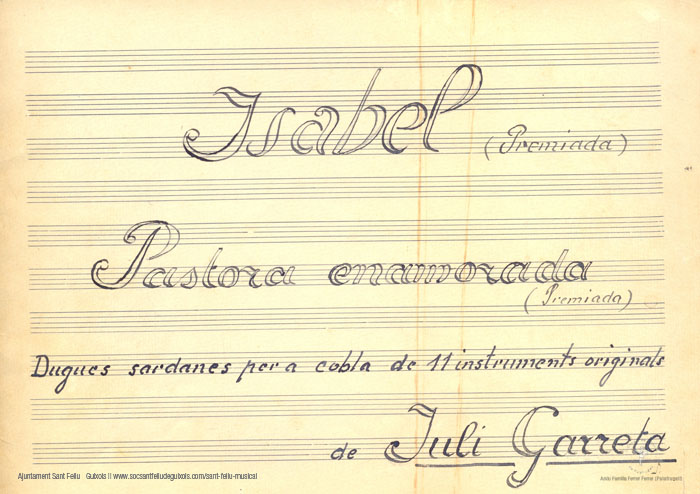 Isabel (Premiada)
Pastora enamorada
(Premiada)
Dugues sardanes per a cobla de 11 instruments originals
de Juli Garreta
Ajuntament Sant Feliu Guíxols II www.socsantfeliudeguixols.com/sant-feliu-musical
Arxiu Família Ferrer Ferrer (Palafrugell)